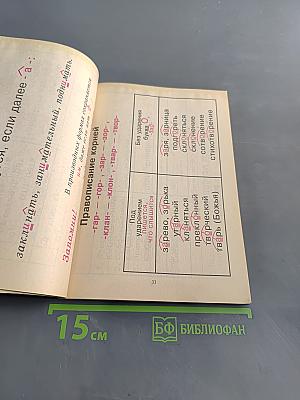 ся, если далее -а-:
заклинать, занимательный, поднимать.
Запомни!
В производных формах сохраняется
Правописание корней
-гар- — -гор-, -зар- — -зор-,
-клан- — -клон-, -твар- — -твор-
Под
ударением
пишется,
что слышится
Без ударения
буква О,
зарево, зорька
угарный
кланяться
преклонный
творческий
тварь (Божья)
заря, зарница
подгореть
склоняться
склонение
сотворение
стихотворение
31
15 см
БФ БИБЛИОФАН